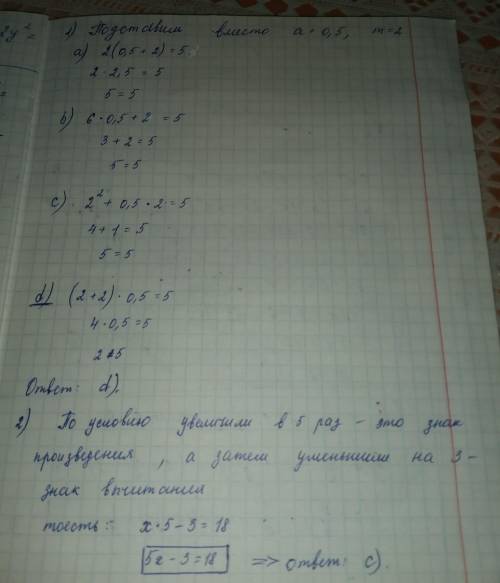 2y² =
1) Подставим вместо a = 0,5, m=2
a) 2(0,5+2)=5
2 · 2,5 = 5
5 = 5
b) 6 · 0,5 + 2 = 5
3 + 2 = 5
5 = 5
c) 2² + 0,5 · 2 = 5
4 + 1 = 5
5 = 5
d) (2+2) · 0,5 = 5
4 · 0,5 = 5
2≠5
Ответ: d).
2) По условию увеличили в 5 раз – это знак
произведения, а затем уменьшили на 3 –
знак вычитания
тоесть: x · 5 – 3 = 18
5x – 3 = 18 => ответ: c).